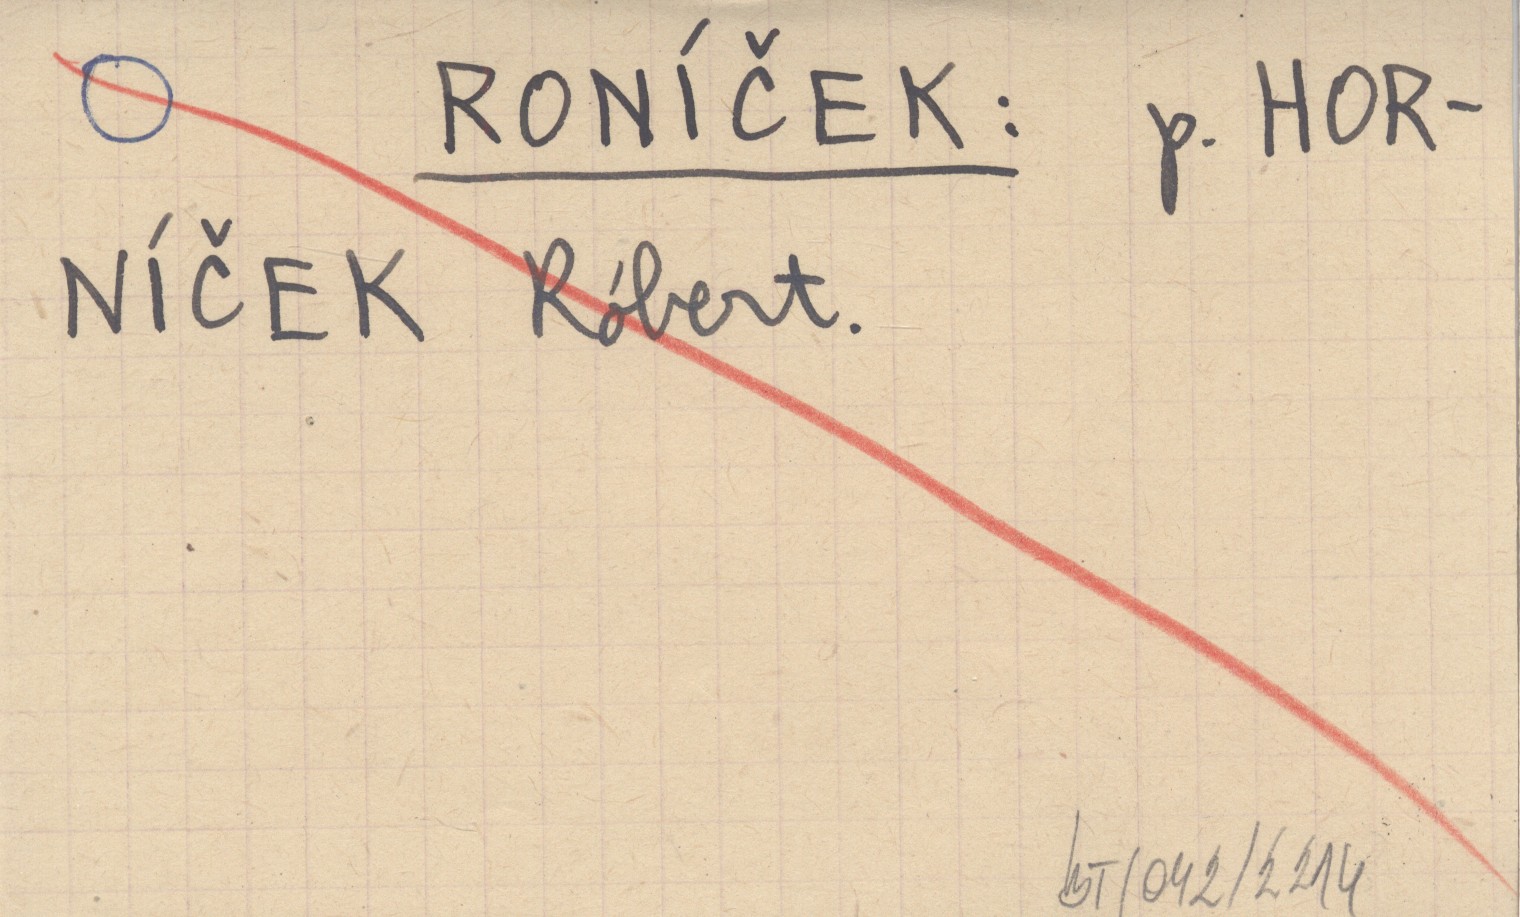 RONÍČEK: p. HOR-
NÍČEK Róbert.
bT/042/2214